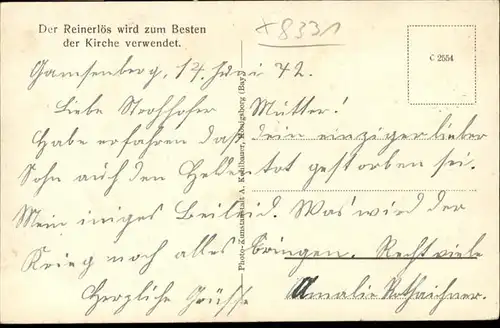 Der Reinerlös wird zum Besten
der Kirche verwendet.
8331
C 2554
Gamsenberg, 14. Juni 42.
Liebe Strohhofer Mutter!
Habe erfahren daß dein einziger lieber
Sohn auf den Helden tot gestorben sei.
Mein iniges Beileid. Was wird der
Krieg noch alles bringen. Recht viele
Herzliche Grüsse Amalie
Photo-Kunstanstalt A. Königsberg (Bay.)